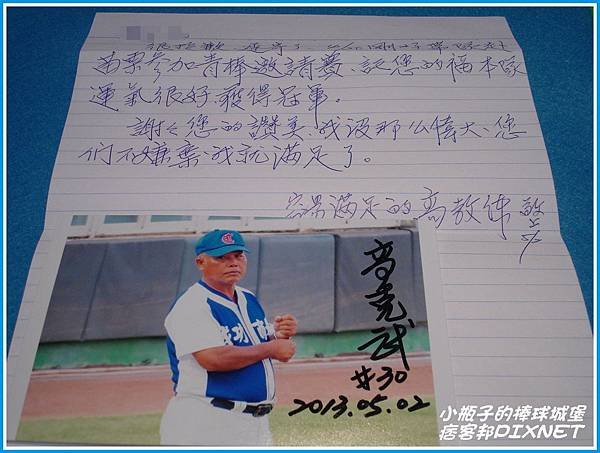 很抱歉
参加青棒邀請賽、託您的福本隊
運氣很好、獲得冠軍。
謝々您的讚美、我沒那么偉大、您
们不嫌棄、我就滿足了。
容易滿足的高教练 敬上
成功
高克武
#30
2013.05.02
小瓶子的棒球城堡
痞客邦PIXNET